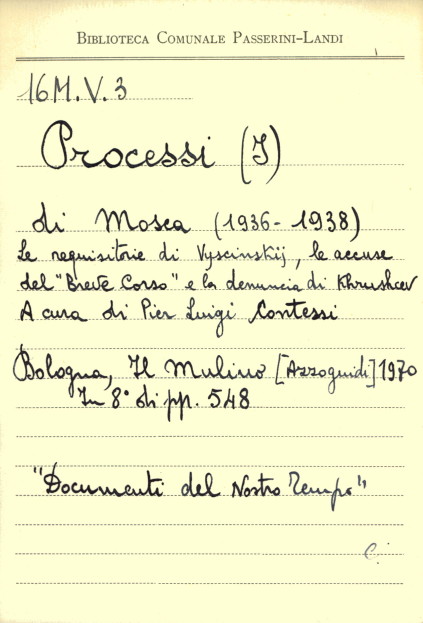 BIBLIOTECA COMUNALE PASSERINI-LANDI
16M.V.3
Processi (I)
di Mosca (1936-1938)
Le requisitorie di Vyscinskij, le accuse
del "Breve Corso" e la denuncia di Khrushcev
A cura di Pier Luigi Contessi
Bologna, Il Mulino [Azzoguidi] 1970
In 8° di pp. 548
"Documenti del Nostro Tempo"
C.